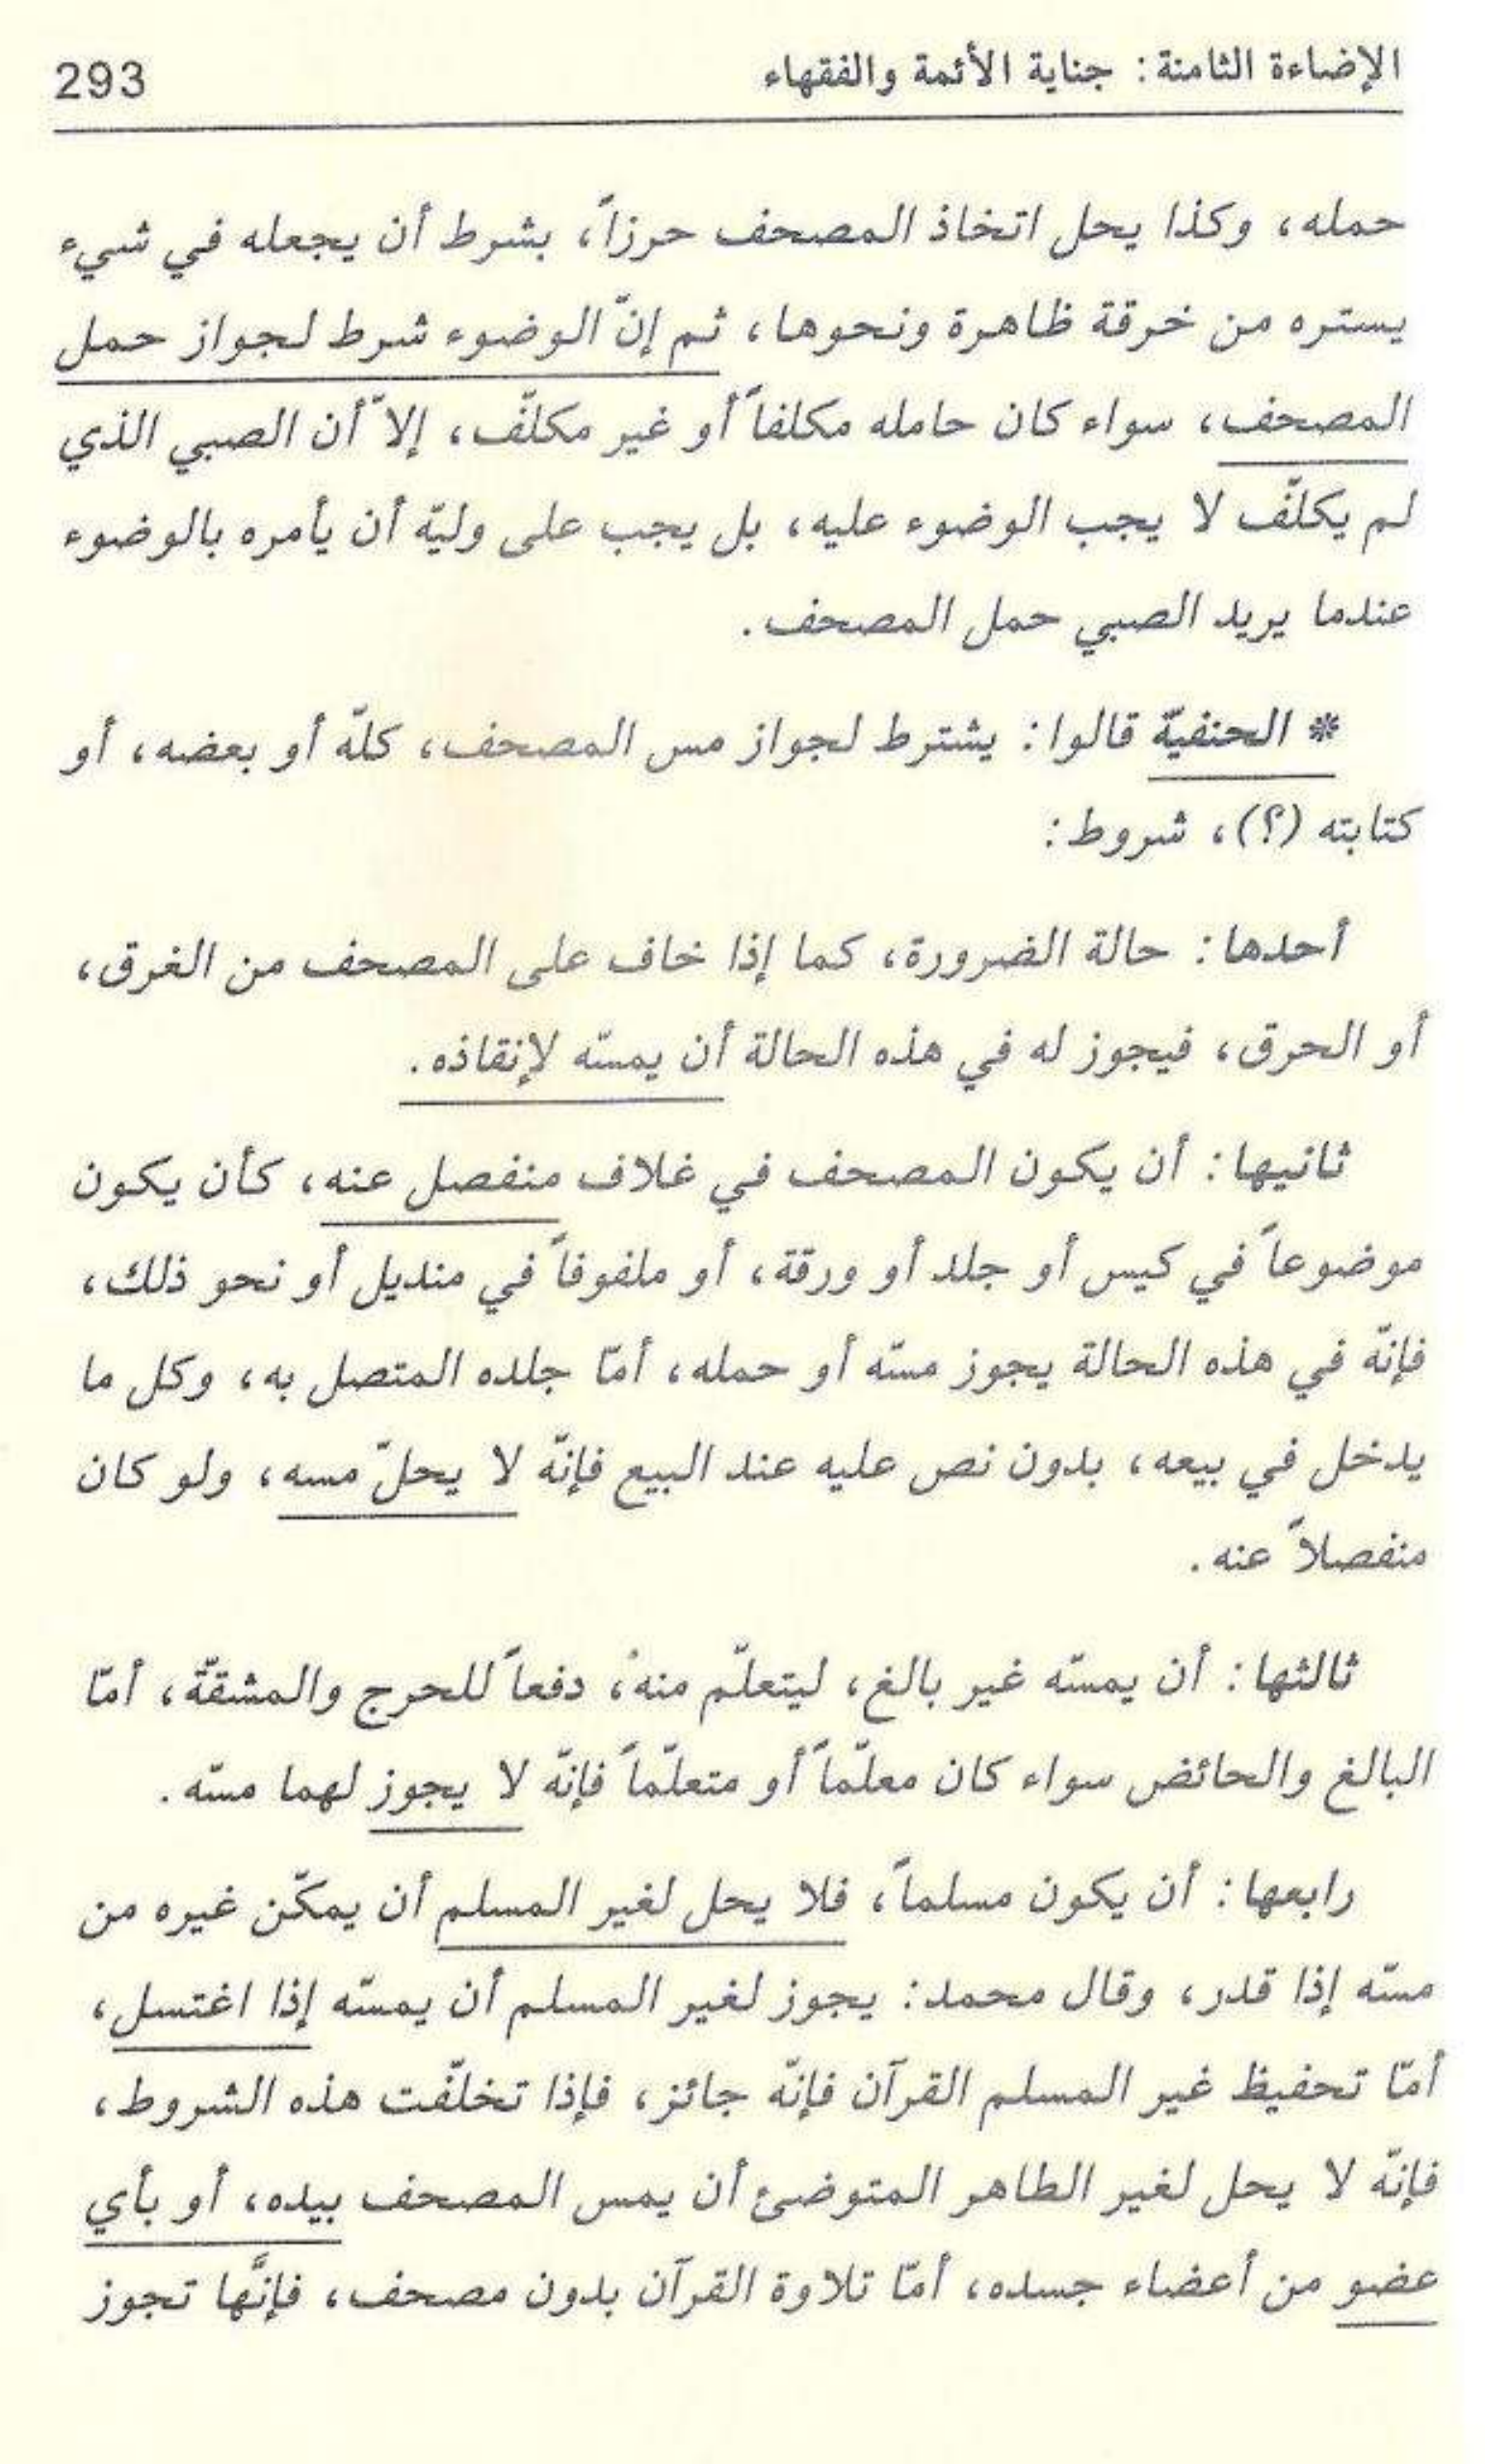 الإضاءة الثامنة: جناية الأئمة والفقهاء 293
حمله، وكذا يحل اتخاذ المصحف حرزاً، بشرط أن يجعله في شيء
يستره من خرقة ظاهرة ونحوها، ثم إنّ الوضوء شرط لجواز حمل
المصحف، سواء كان حامله مكلفاً أو غير مكلّف، إلاّ أن الصبي الذي
لم يكلّف لا يجب الوضوء عليه، بل يجب على وليّه أن يأمره بالوضوء
عندما يريد الصبي حمل المصحف.
* الحنفيّة قالوا: يشترط لجواز مس المصحف، كلّه أو بعضه، أو
كتابته (؟)، شروط:
أحدها: حالة الضرورة، كما إذا خاف على المصحف من الغرق،
أو الحرق، فيجوز له في هذه الحالة أن يمسّه لإنقاذه.
ثانيها: أن يكون المصحف في غلاف منفصل عنه، كأن يكون
موضوعاً في كيس أو جلد أو ورقة، أو ملفوفاً في منديل أو نحو ذلك،
فإنّه في هذه الحالة يجوز مسّه أو حمله، أمّا جلده المتصل به، وكل ما
يدخل في بيعه، بدون نص عليه عند البيع فإنّه لا يحلّ مسه، ولو كان
منفصلاً عنه.
ثالثها: أن يمسّه غير بالغ، ليتعلّم منه، دفعاً للحرج والمشقّة، أمّا
البالغ والحائض سواء كان معلّماً أو متعلّماً فإنّه لا يجوز لهما مسّه.
رابعها: أن يكون مسلماً، فلا يحل لغير المسلم أن يمكّن غيره من
مسّه إذا قدر، وقال محمد: يجوز لغير المسلم أن يمسّه إذا اغتسل،
أمّا تحفيظ غير المسلم القرآن فإنّه جائز، فإذا تخلّفت هذه الشروط،
فإنّه لا يحل لغير الطاهر المتوضئ أن يمس المصحف بيده، أو بأي
عضو من أعضاء جسده، أمّا تلاوة القرآن بدون مصحف، فإنَّها تجوز